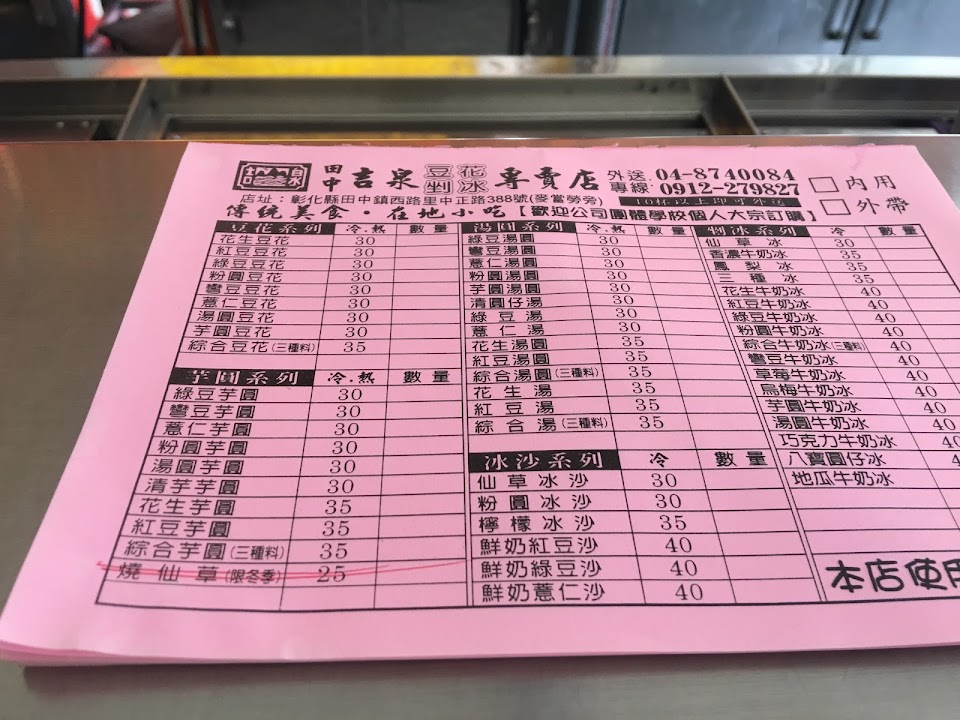 田中 吉泉 豆花 剉冰 專賣店
外送專線: 04-8740084
0912-279827
10杯以上即可外送
□ 內用
□ 外帶
店址:彰化縣田中鎮西路里中正路388號(麥當勞旁)
傳統美食・在地小吃【歡迎公司團體學校個人大宗訂購】
豆花系列 冷.熱 數量
花生豆花 30
紅豆豆花 30
綠豆豆花 30
粉圓豆花 30
彎豆豆花 30
薏仁豆花 30
湯圓豆花 30
芋圓豆花 30
綜合豆花(三種料) 35
芋圓系列 冷.熱 數量
綠豆芋圓 30
彎豆芋圓 30
薏仁芋圓 30
粉圓芋圓 30
湯圓芋圓 30
清芋芋圓 30
花生芋圓 35
紅豆芋圓 35
綜合芋圓(三種料) 35
燒仙草(限冬季) 25
湯圓系列 冷.熱 數量
綠豆湯圓 30
彎豆湯圓 30
薏仁湯圓 30
粉圓湯圓 30
芋圓湯圓 30
清圓仔湯 30
綠豆湯 30
薏仁湯 30
花生湯圓 35
紅豆湯圓 35
綜合湯圓(三種料) 35
花生湯 35
紅豆湯 35
綜合湯(三種料) 35
冰沙系列 冷 數量
仙草冰沙 30
粉圓冰沙 30
檸檬冰沙 35
鮮奶紅豆沙 40
鮮奶綠豆沙 40
鮮奶薏仁沙 40
剉冰系列 冷 數量
仙草冰 30
香濃牛奶冰 35
鳳梨冰 35
三種冰 35
花生牛奶冰 40
紅豆牛奶冰 40
綠豆牛奶冰 40
粉圓牛奶冰 40
綜合牛奶冰(三種料) 40
彎豆牛奶冰 40
草莓牛奶冰 40
烏梅牛奶冰 40
芋圓牛奶冰 40
湯圓牛奶冰 40
巧克力牛奶冰 40
八寶圓仔冰
地瓜牛奶冰
本店使用